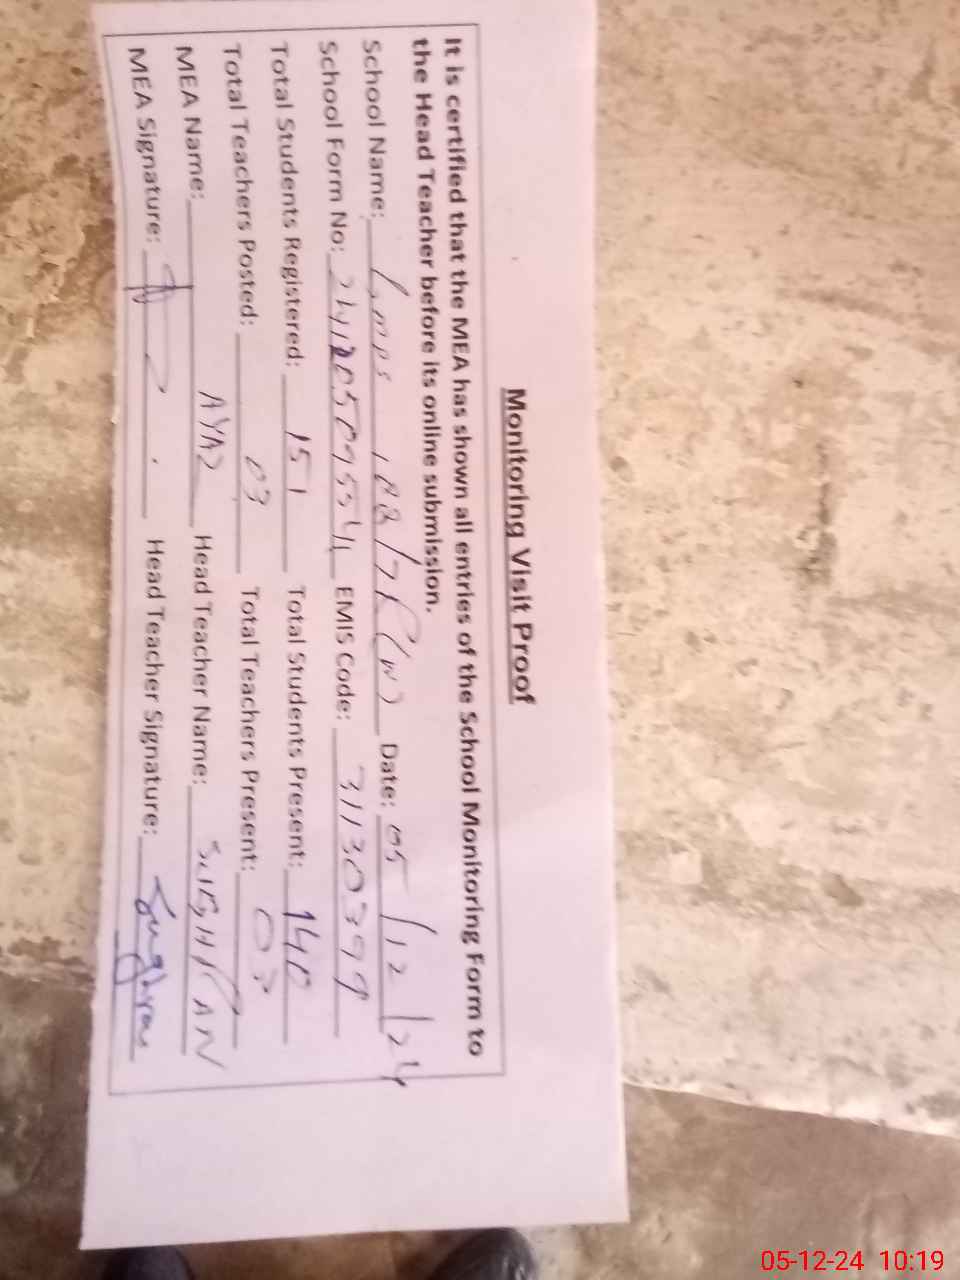 Monitoring Visit Proof
It is certified that the MEA has shown all entries of the School Monitoring Form to
the Head Teacher before its online submission.
School Name: 188/7R(W) Date: 05/12/24
School Form No: EMIS Code: 31130399
Total Students Registered: 151 Total Students Present: 140
Total Teachers Posted: 03 Total Teachers Present: 03
MEA Name: AYAZ Head Teacher Name:
MEA Signature: Head Teacher Signature:
05-12-24 10:19